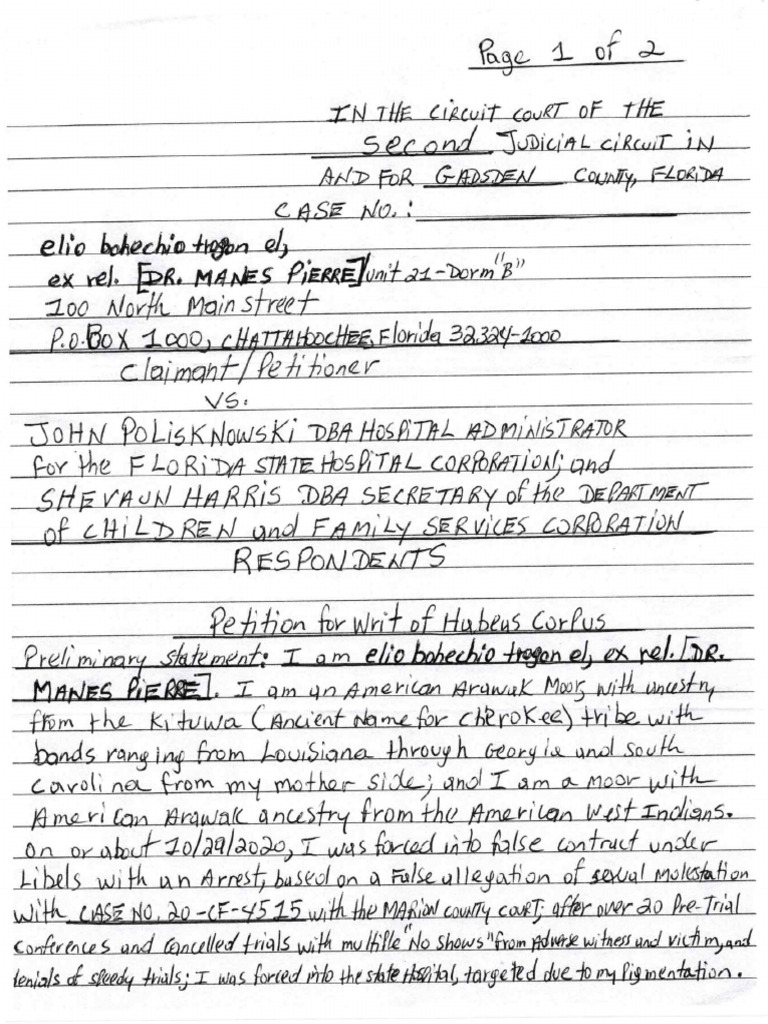 Page 1 of 2
IN THE CIRCUIT COURT OF THE
second JUDICIAL CIRCUIT IN
AND FOR GADSDEN COUNTY, FLORIDA
CASE NO.:
elio bohechio tragon el,
ex rel. [DR. MANES PIERRE] unit 21-Dorm "B"
100 North Main street
P.O. BOX 1000, CHATTAHOOCHEE, Florida 32324-1000
Claimant/Petitioner
VS.
JOHN POLISKNOWSKI DBA HOSPITAL ADMINISTRATOR
for the FLORIDA STATE HOSPITAL CORPORATION; and
SHEVAUN HARRIS DBA SECRETARY of the DEPARTMENT
of CHILDREN and FAMILY SERVICES CORPORATION
RESPONDENTS
Petition for Writ of Habeas Corpus
Preliminary statement: I am elio bohechio tragon el, ex rel. [DR.
MANES PIERRE]. I am an American Arawak Moor, with ancestry
from the Kituwa (Ancient Name for Cherokee) tribe with
bands ranging from Louisiana through Georgia and South
Carolina from my mother side; and I am a Moor with
American Arawak ancestry from the American West Indians.
On or about 10/29/2020, I was forced into false contract under
Libels with an Arrest, based on a False allegation of sexual Molestation
with CASE NO. 20-CF-4515 with the MARION COUNTY COURT; after over 20 Pre-Trial
Conferences and Cancelled trials with multiple "No Shows" from Adverse witness and victim, and
denials of speedy trials; I was forced into the state Hospital, targeted due to my Pigmentation.